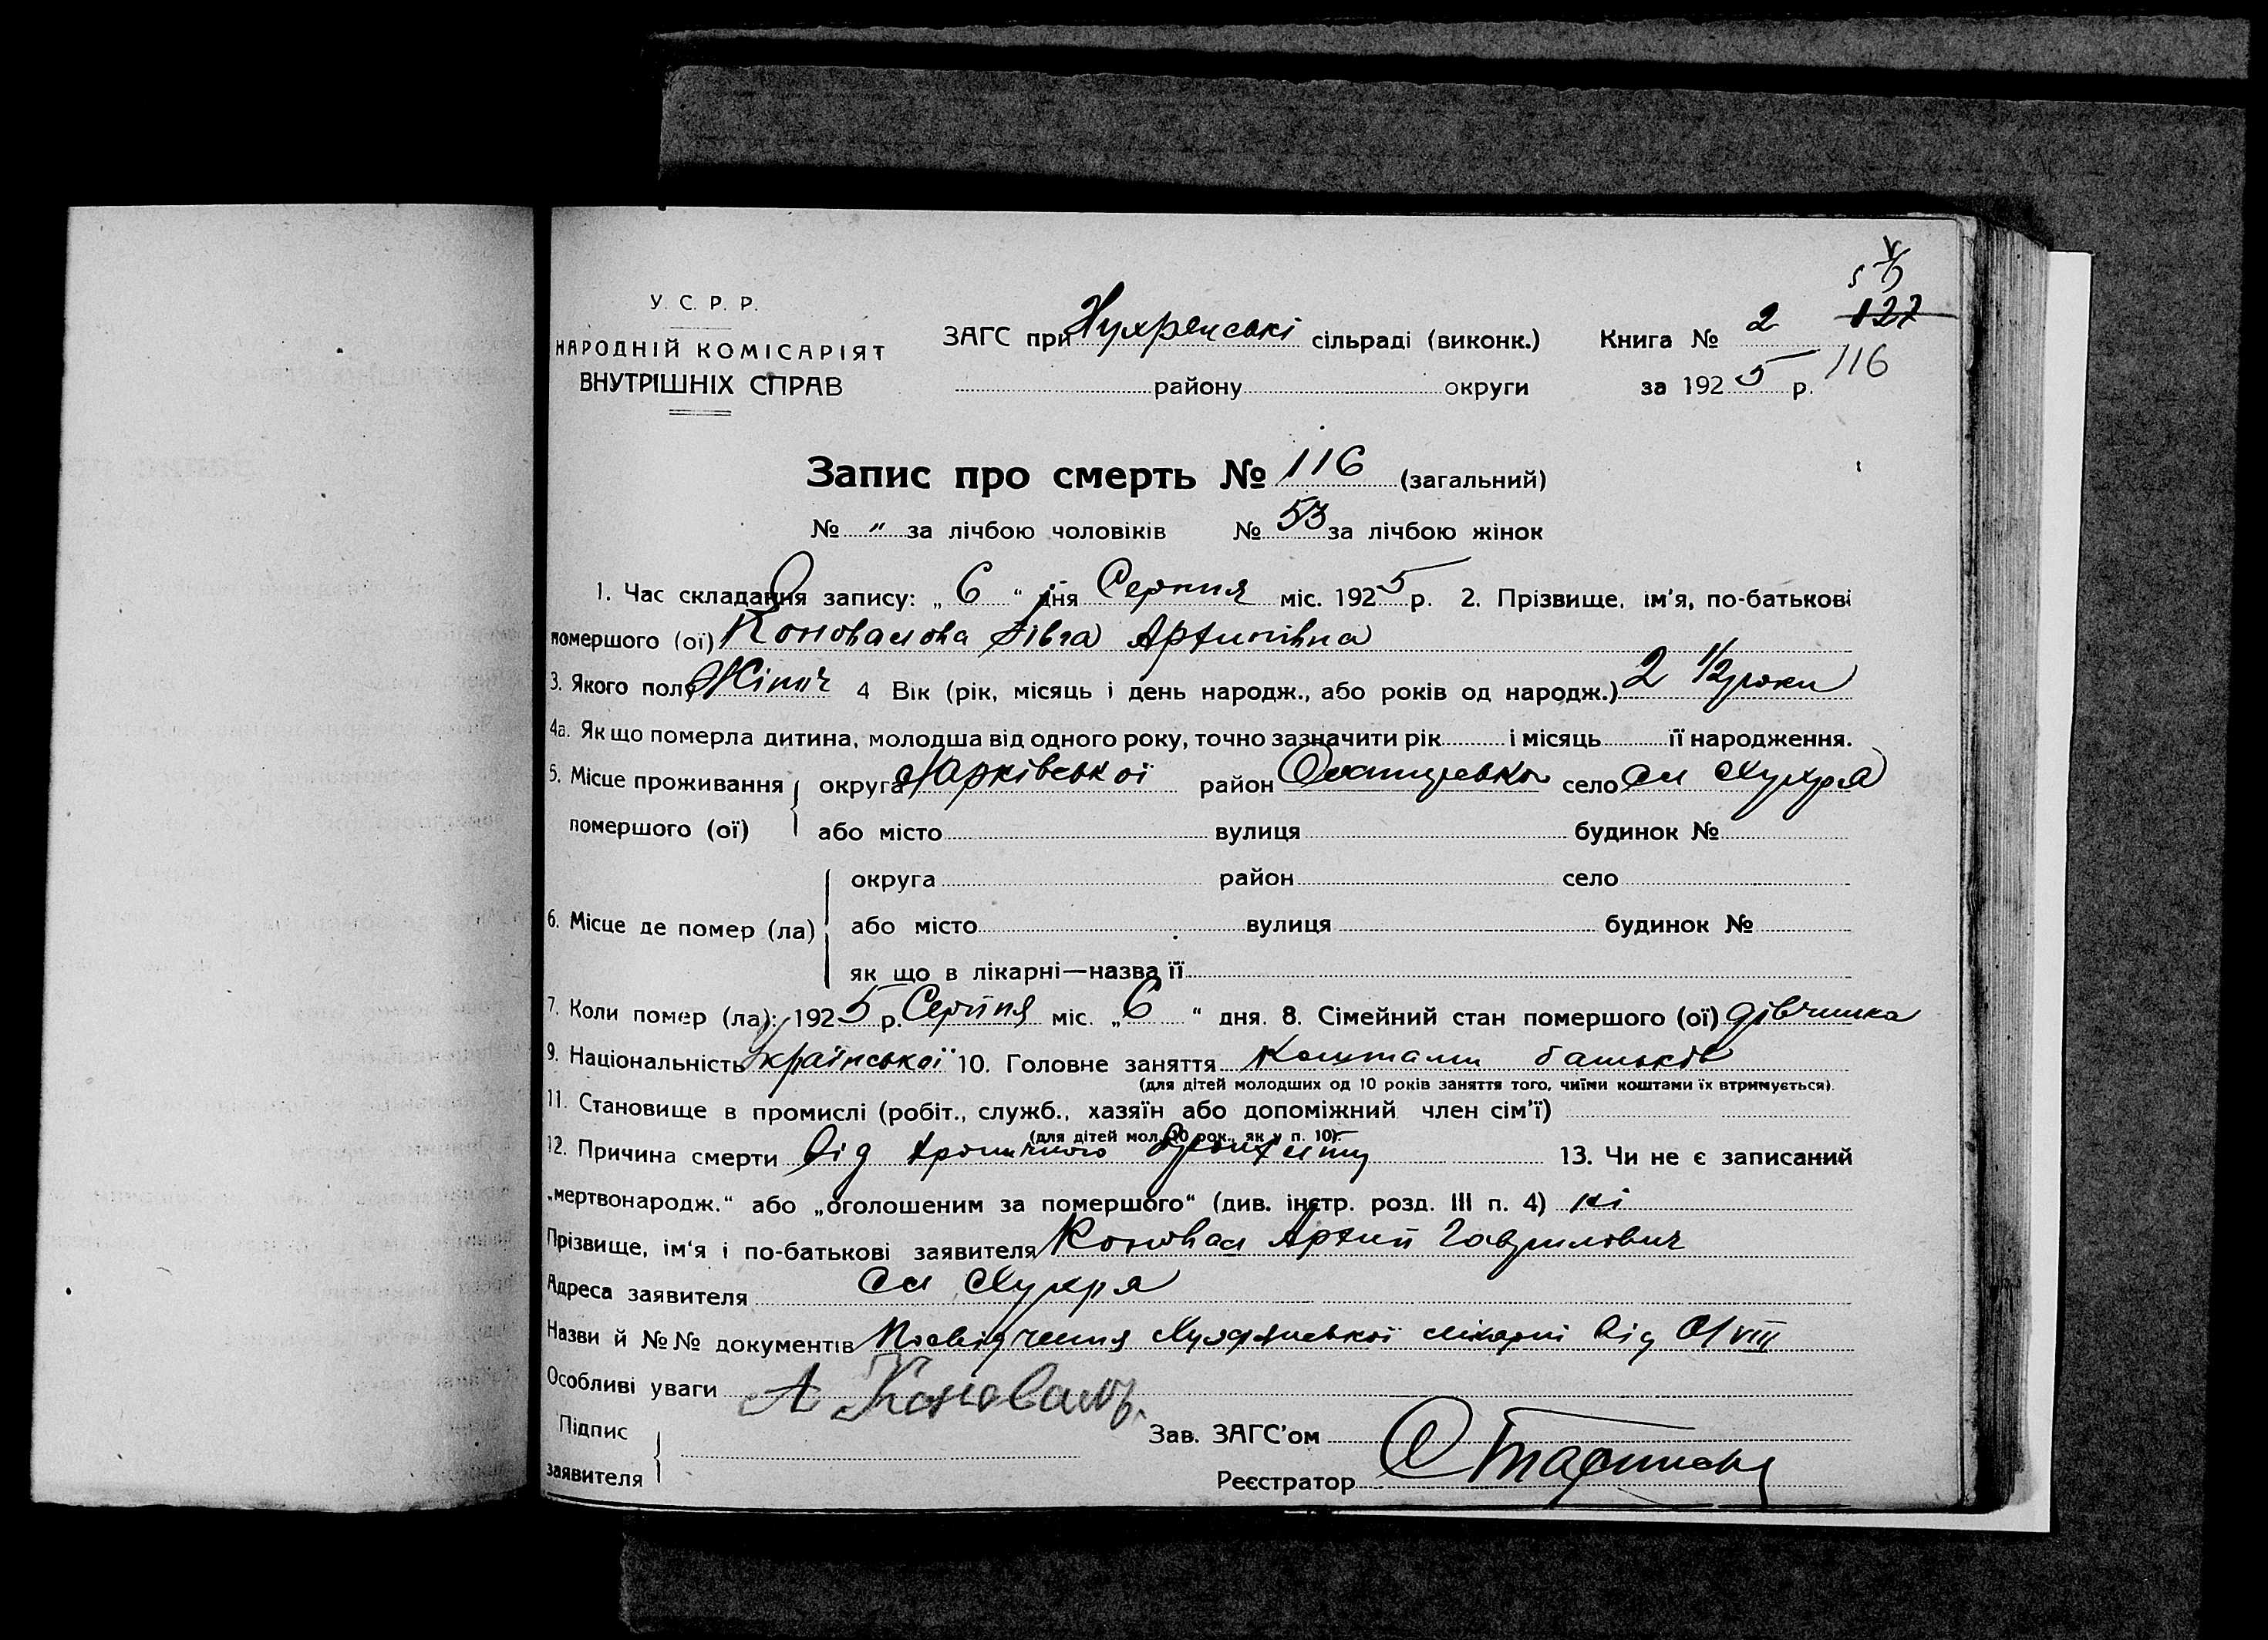 У. С. Р. Р.
НАРОДНІЙ КОМІСАРІЯТ
ВНУТРІШНІХ СПРАВ
ЗАГС при Хухрянські сільраді (виконк.) Книга № 2 127
району округи за 1925 р. 116
Запис про смерть № 116 (загальний)
№ „ за лічбою чоловіків № 53 за лічбою жінок
1. Час складання запису: „ 6 “ дня Серпня міс. 1925 р. 2. Прізвище, ім'я, по-батькові
помершого (ої) Коновалова Явга Артинівна
3. Якого полу Жіноч 4 Вік (рік, місяць і день народж., або років од народж.) 2 1/2 роки
4а. Як що померла дитина, молодша від одного року, точно зазначити рік і місяць її народження.
5. Місце проживання округа Харківської район Охтирсько село сл Хухря
помершого (ої) або місто вулиця будинок №
округа район село
6. Місце де помер (ла) або місто вулиця будинок №
як що в лікарні—назва її
7. Коли помер (ла): 1925 р. Серпня міс. „ 6 “ дня. 8. Сімейний стан помершого (ої) дівчинка
9. Національність Української 10. Головне заняття коштами батьків
(для дітей молодших од 10 років заняття того, чиїми коштами їх втримується).
11. Становище в промислі (робіт., служб., хазяїн або допоміжний член сім'ї)
(для дітей мол. 10 рок., як у п. 10).
12. Причина смерти Від хронічного бронхиту 13. Чи не є записаний
„мертвонародж.“ або „оголошеним за помершого“ (див. інстр. розд. III п. 4) ні
Прізвище, ім'я і по-батькові заявителя Коновал Артип Гаврилович
Адреса заявителя сл Хухря
Назви й №№ документів Посвідчення Хухрянської лікарні від VIII
Особливі уваги А Коновал
Підпис
заявителя
Зав. ЗАГС'ом
Реєстратор